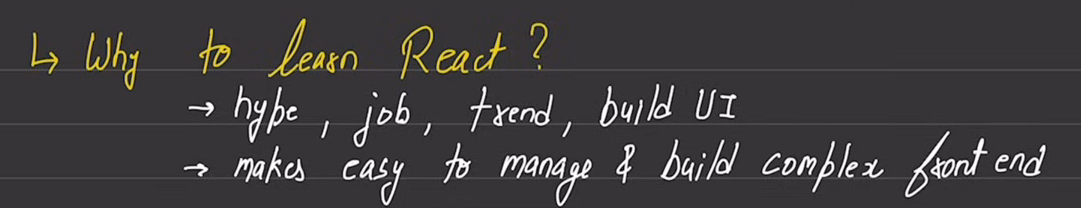 ↳ Why to learn React?
→ hype, job, trend, build UI
→ makes easy to manage & build complex front end